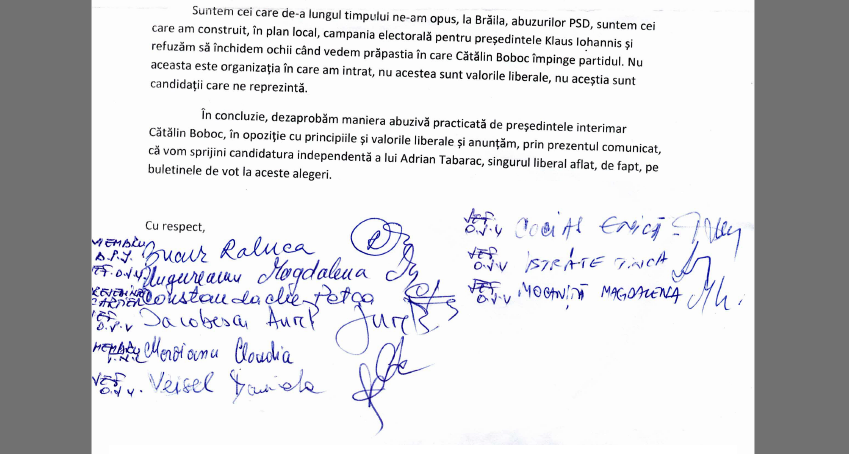 Suntem cei care de-a lungul timpului ne-am opus, la Brăila, abuzurilor PSD, suntem cei
care am construit, în plan local, campania electorală pentru președintele Klaus Iohannis și
refuzăm să închidem ochii când vedem prăpastia în care Cătălin Boboc împinge partidul. Nu
aceasta este organizația în care am intrat, nu acestea sunt valorile liberale, nu aceștia sunt
candidații care ne reprezintă.
În concluzie, dezaprobăm maniera abuzivă practicată de președintele interimar
Cătălin Boboc, în opoziție cu principiile și valorile liberale și anunțăm, prin prezentul comunicat,
că vom sprijini candidatura independentă a lui Adrian Tabarac, singurul liberal aflat, de fapt, pe
buletinele de vot la aceste alegeri.
Cu respect,
MEMBRU Raluca
Ungureanu Magdalena
Constandache Petca
Iacobescu Aurel
MEMBRU Moroianu Claudia
Veisel Daniela
ȘEF O.V.V COCIAȘ ENICĂ
ȘEF O.V.V ISTRATE TINCA
ȘEF O.V.V MOCANIȚĂ MAGDALENA